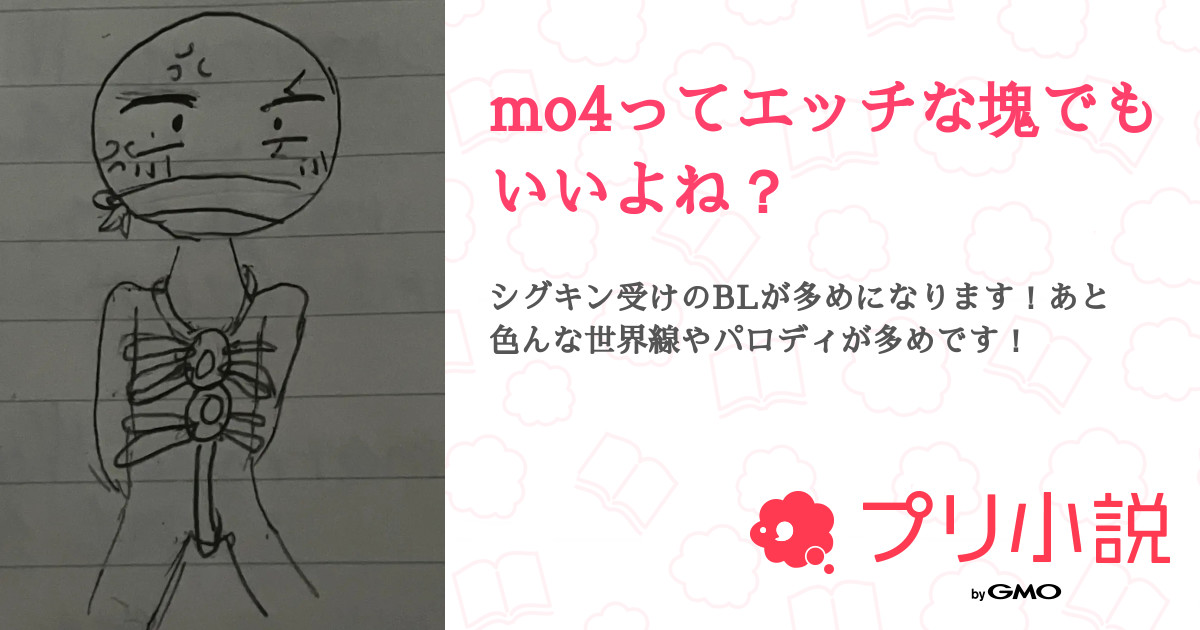 mo4ってエッチな塊でも
いいよね？
シグキン受けのBLが多めになります！あと
色んな世界線やパロディが多めです！
プリ小説
by GMO